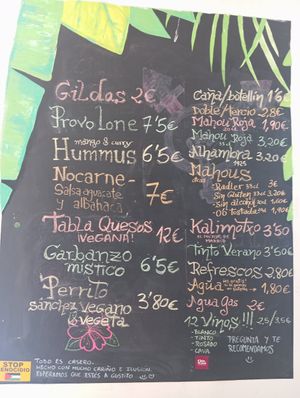 Gildas 2€
Provolone 7'5€
mango & curry
Hummus 6'5€
Nocarne-
Salsa aguacate
y albahaca
7€
Tabla Quesos
¡VEGANA! 12€
Garbanzo
místico 6'5€
Perrito
Sánchez Vegano
& vegeta 3'80€
STOP
GENOCIDIO
TODO ES CASERO.
HECHO CON MUCHO CARIÑO E ILUSIÓN.
ESPERAMOS QUE ESTÉS A GUSTITO
Caña/botellín 1'5€
Doble/Tercio 2'8€
Mahou Roja 1,90€
Mahou Roja
33cl 3,20€
Alhambra
1925 3,20€
Mahous
- Radler 33cl 3€
- Sin Gluten 33cl 3€
- Sin alcohol 1,60€
- 0,0 Tostada 1,90€
Kalimotxo 3'50
EL MEJOR DE
MADRID
Tinto Verano 3'50€
Refrescos 2'80€
Agua 1,80€
Agua Gas 2€
12 Vinos!!! 2,5/3,5€
- BLANCO
- TINTO
- ROSADO
- CAVA
PREGUNTA Y TE
RECOMENDAMOS